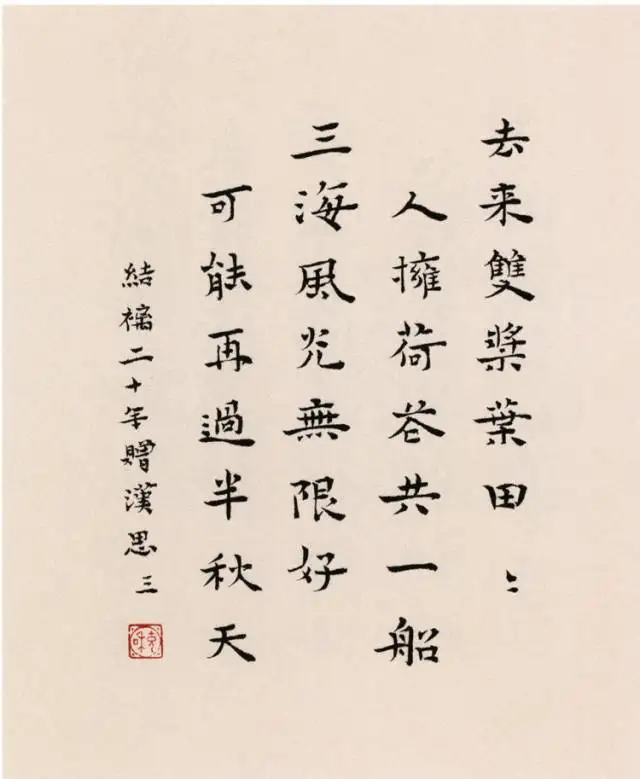 去来雙槳葉田〻
人擁荷花共一船
三海風光無限好
可能再過半秋天
結褵二十年贈漢思 三
充和